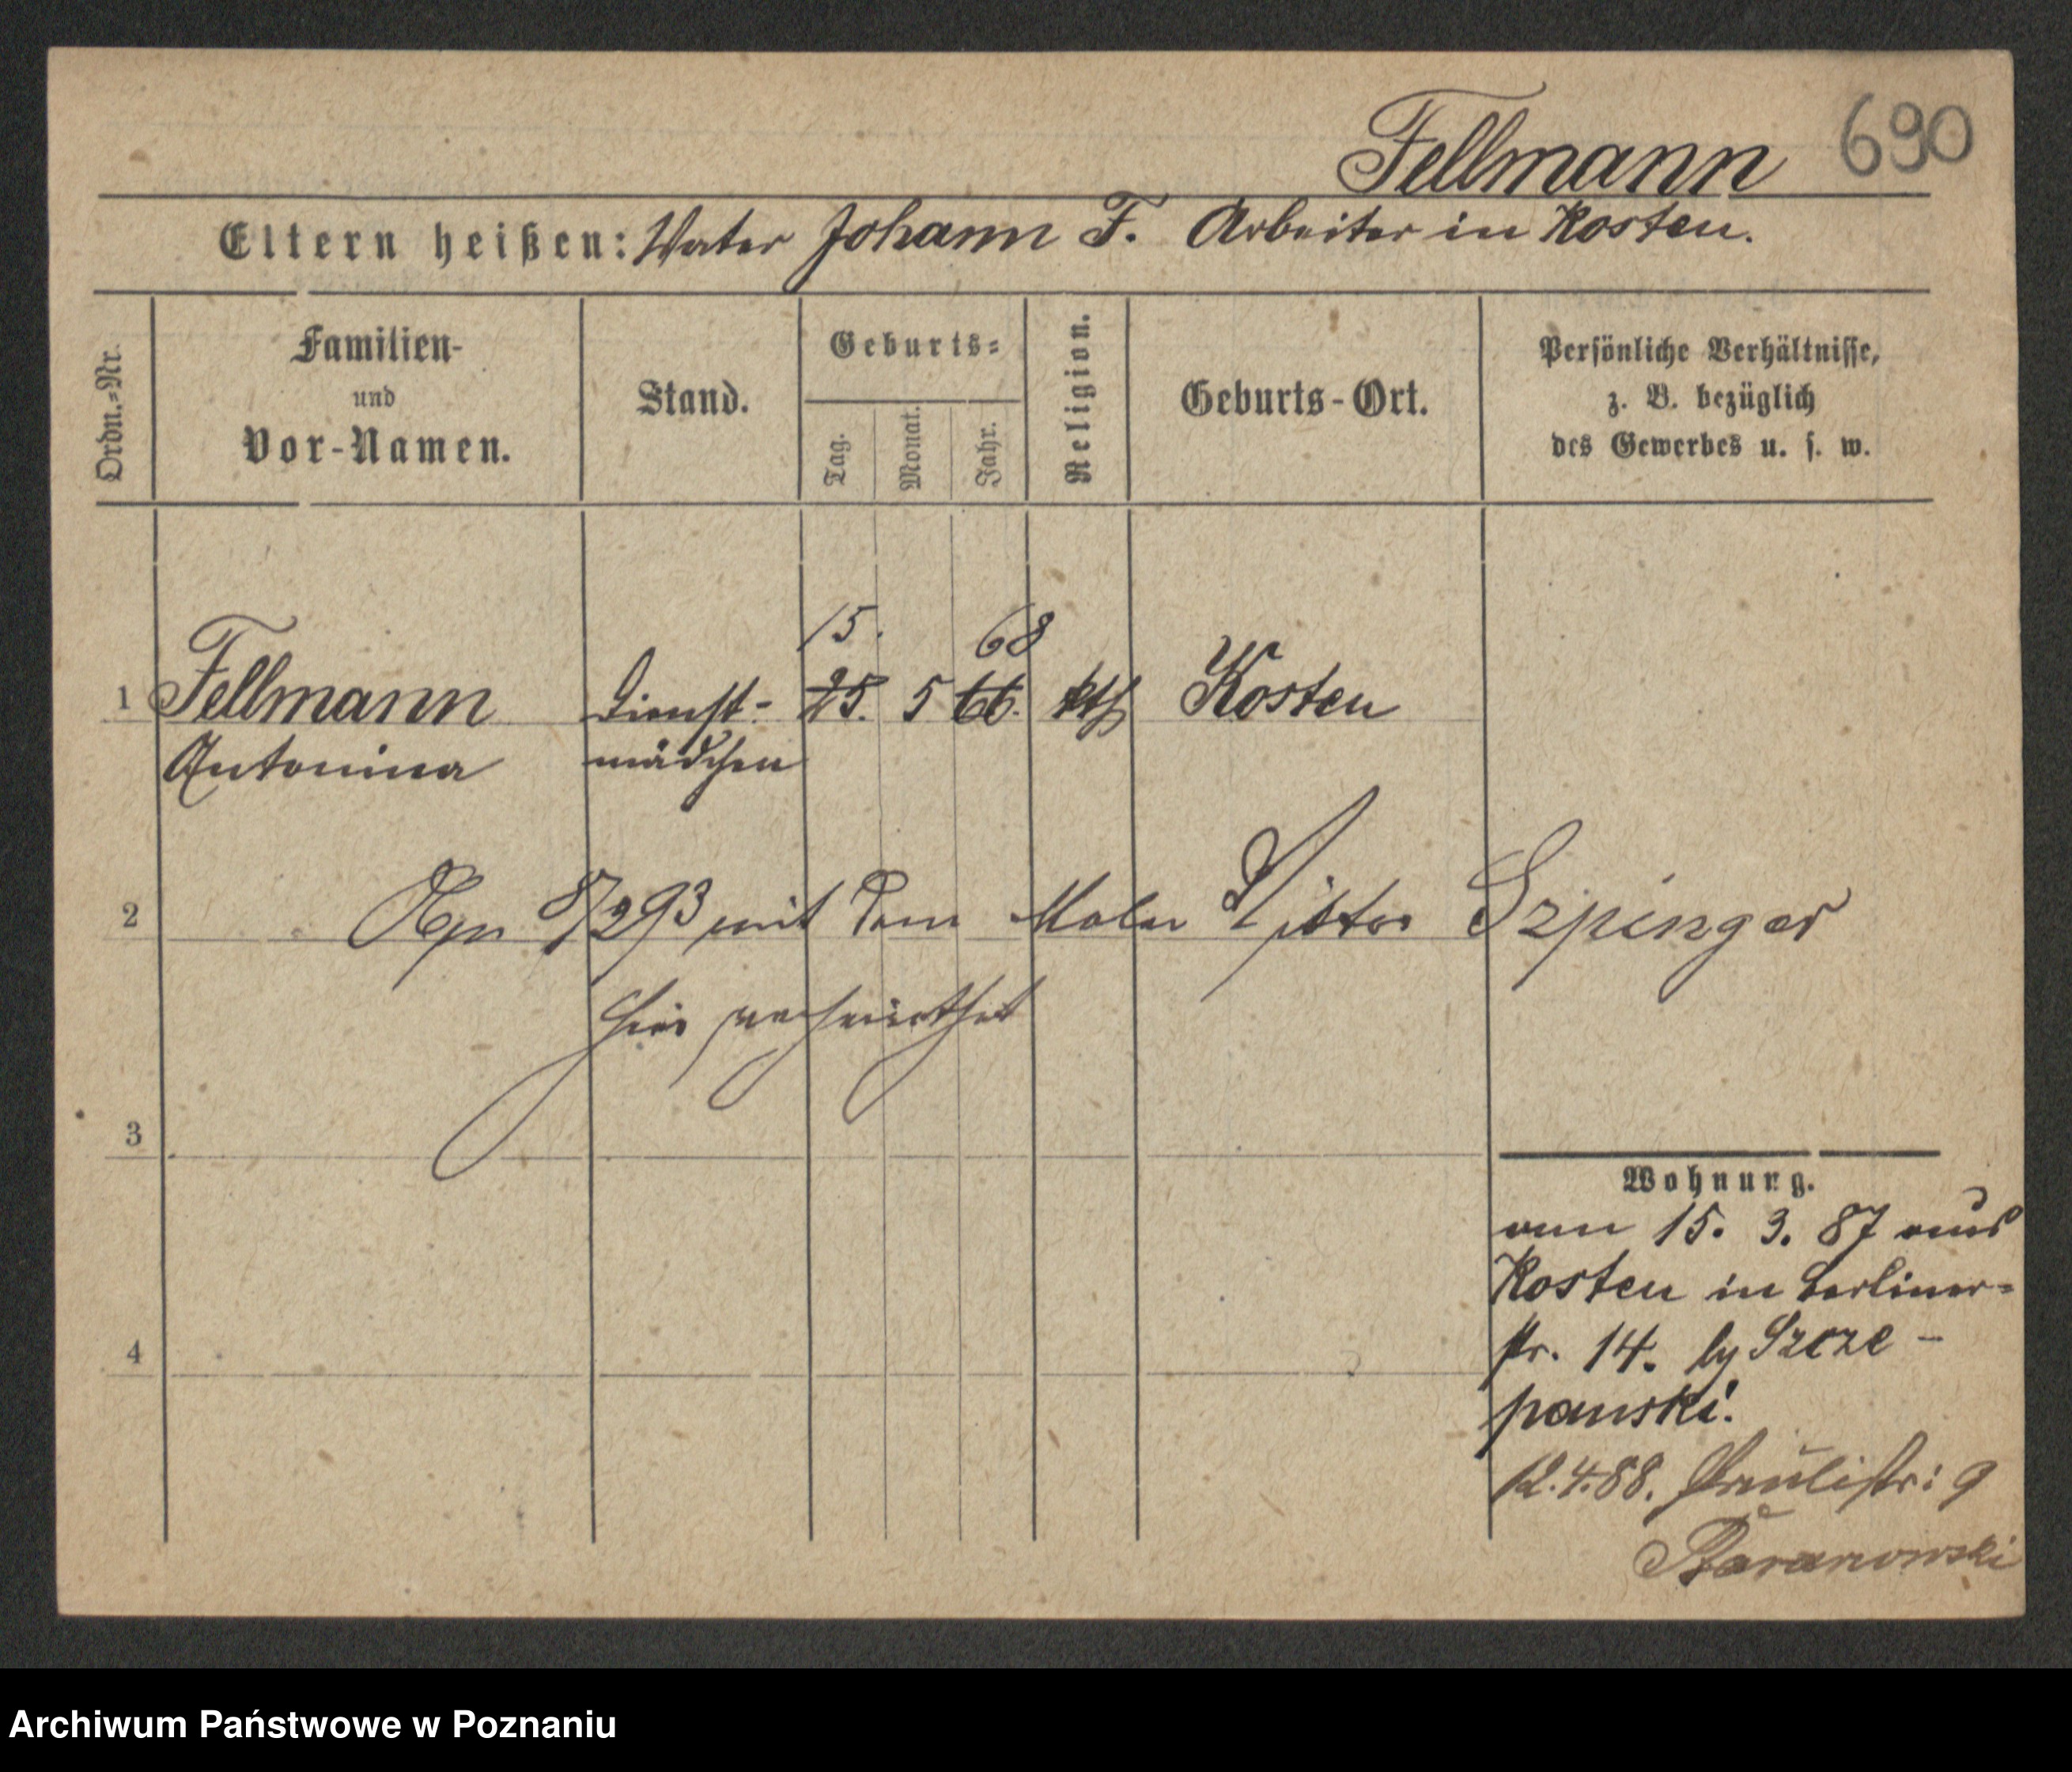 Fellmann 690
Eltern heißen: Vater Johann F. Arbeiter in Kosten.
Ordn.-Nr.
Familien-
und
Vor-Namen.
Stand.
Geburts-
Tag.
Monat.
Jahr.
Religion.
Geburts-Ort.
Persönliche Verhältnisse,
z. B. bezüglich
des Gewerbes u. s. w.
15. 68
1 Fellmann Dienst- 25. 5 66. kth Kosten
Antonina mädchen
2 8/2 93 mit dem Maler Victor Szpinger
hier verheirathet
3
Wohnung.
vom 15. 3. 87 aus
Kosten in Berliner-
4 str. 14. by Szcze-
panski.
12.4.88. Paulistr: 9
Baranowski
Archiwum Państwowe w Poznaniu